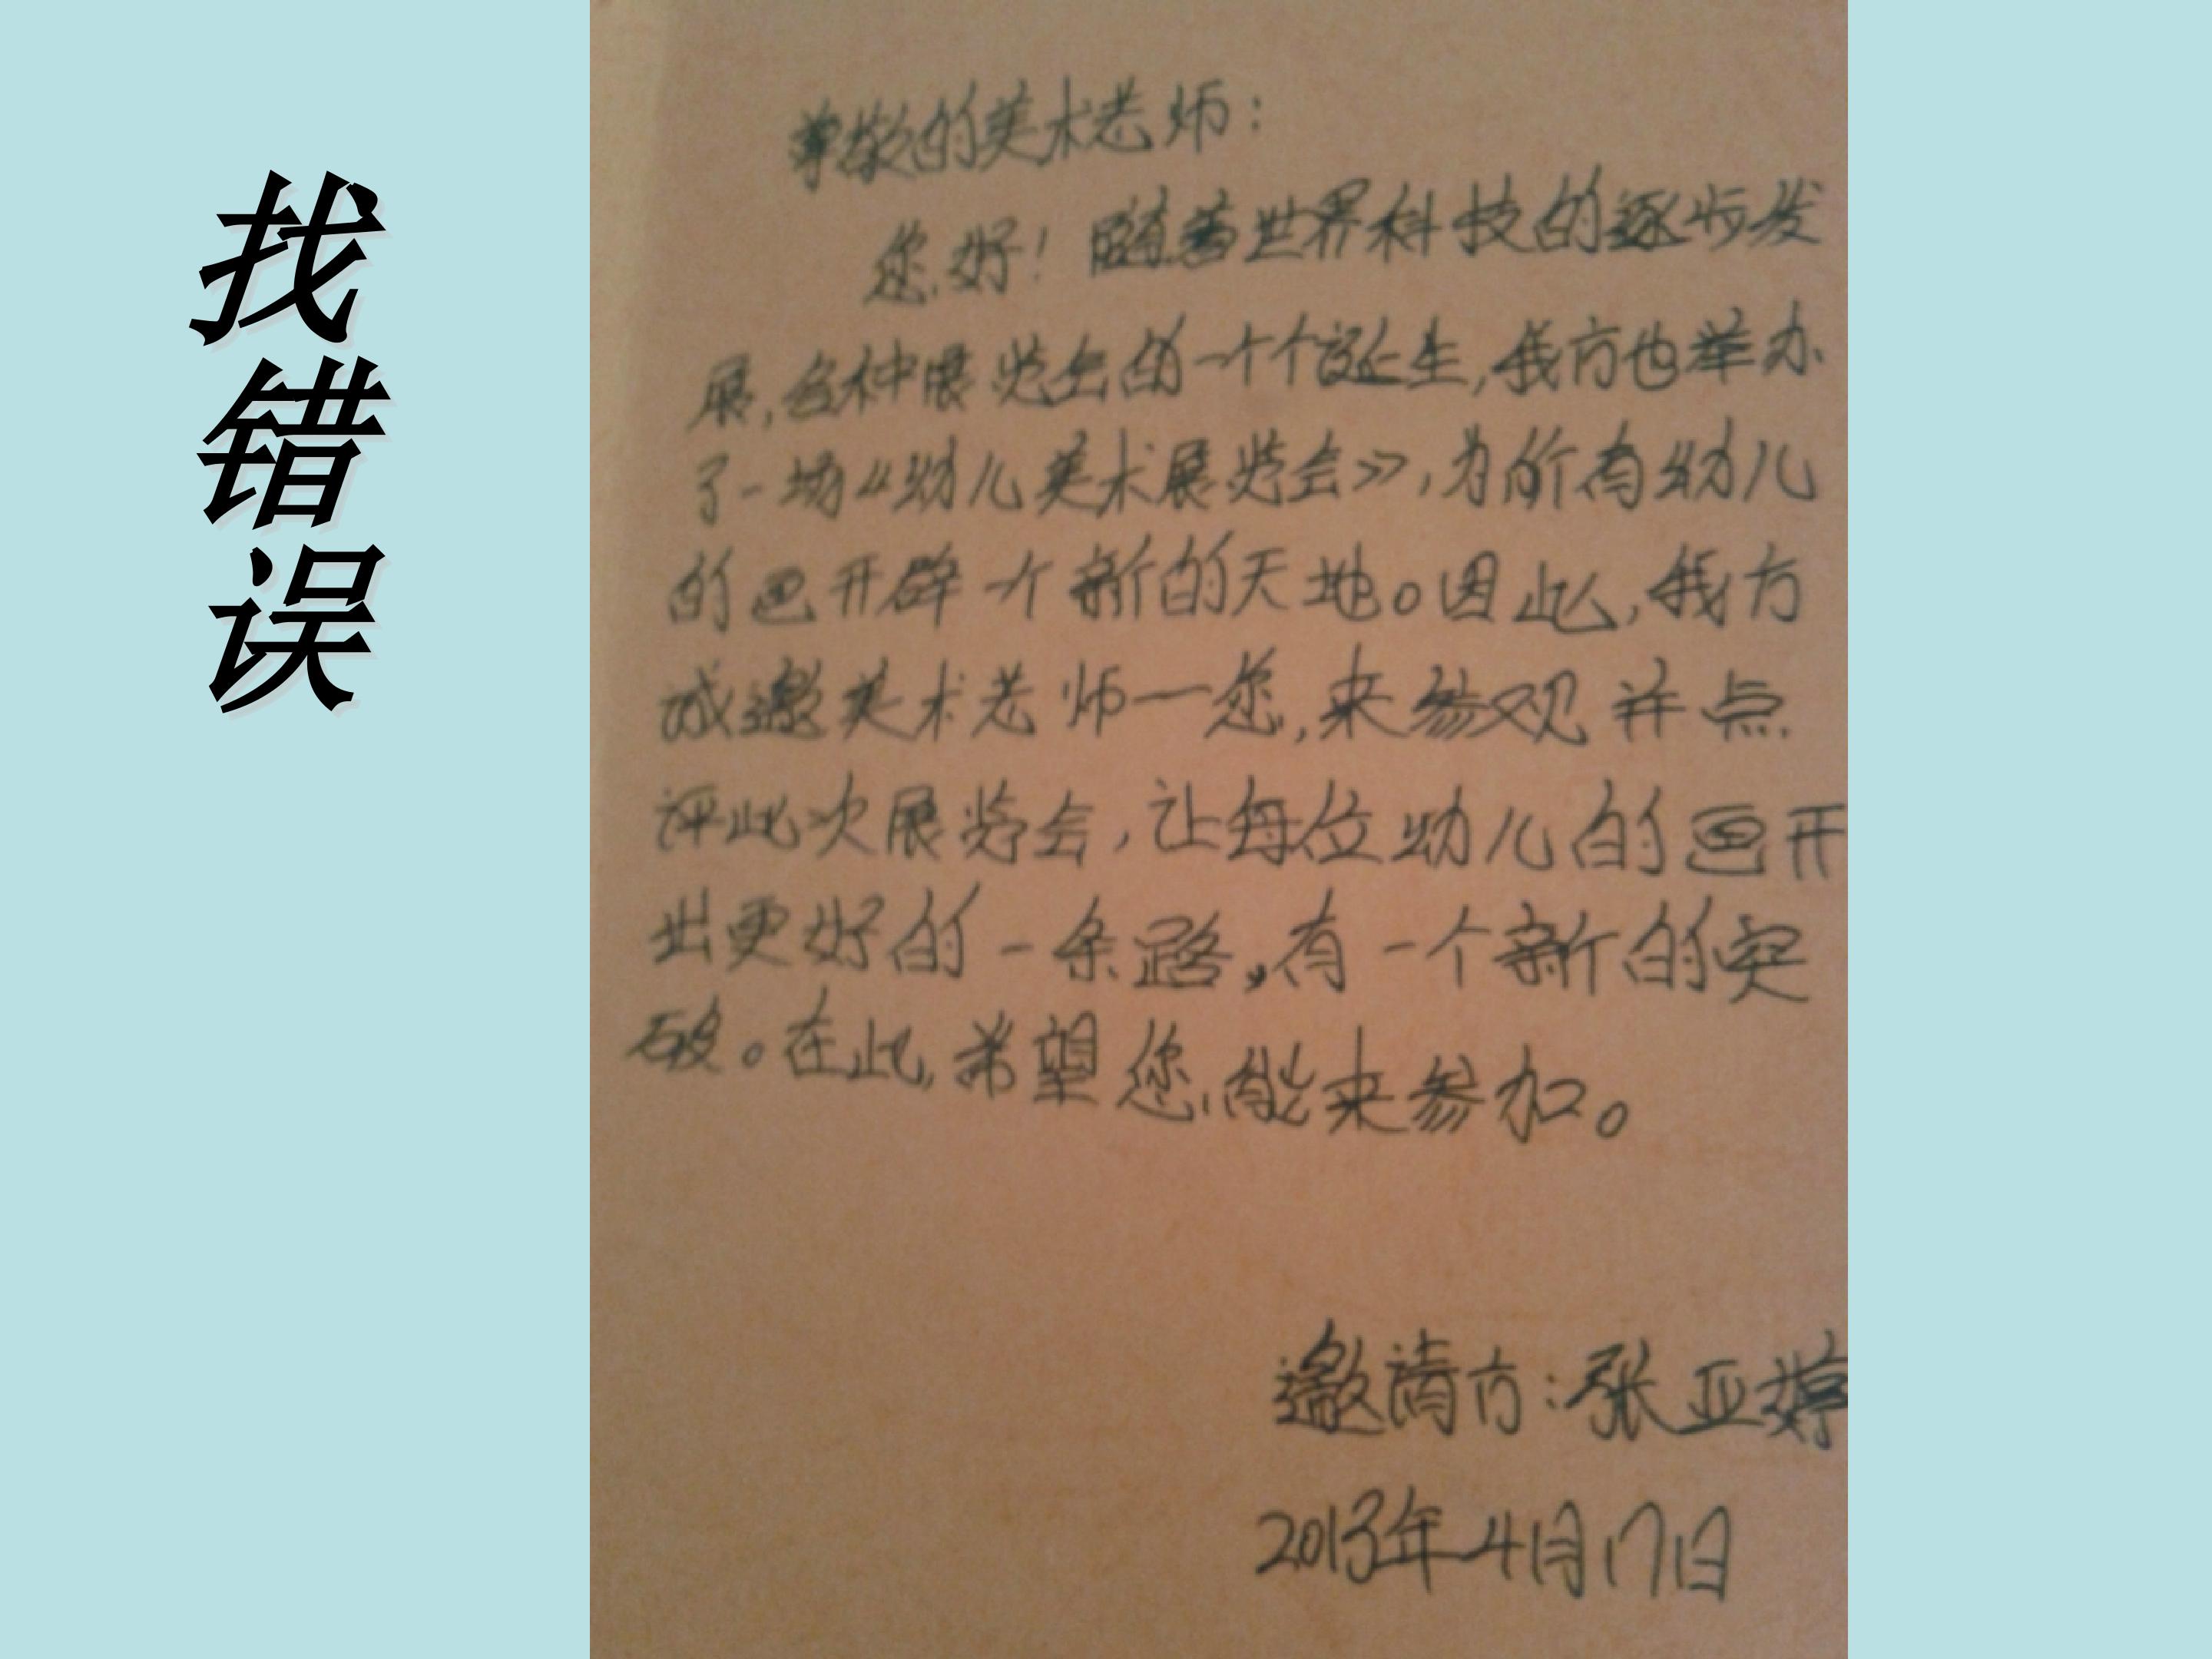 找错误
尊敬的美术老师：
您好！随着世界科技的逐步发
展，各种展览会的一个个诞生，我方也举办
了一场《幼儿美术展览会》，为所有幼儿
的画开辟一个新的天地。因此，我方
诚邀美术老师一您，来参观并点
评此次展览会，让每位幼儿的画开
出更好的一条路，有一个新的突
破。在此，希望您能来参加。
邀请方：张亚婷
2013年4月17日